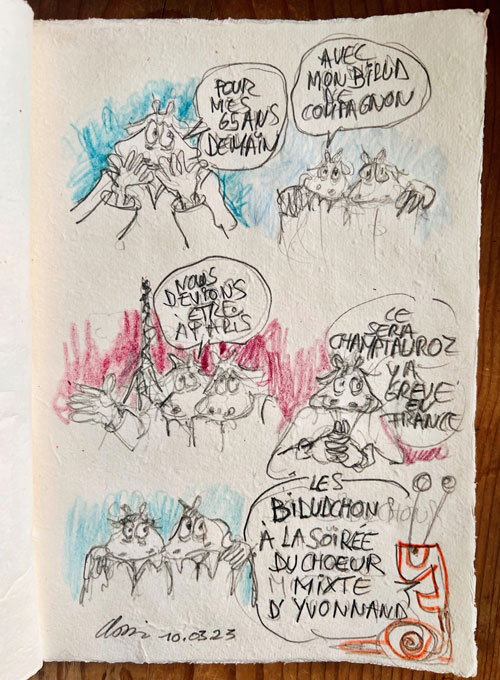 POUR
MES
65 ANS
DEMAIN
AVEC
MON BILUD
DE
COMPAGNON
NOUS
DEVIONS
ÊTRE
À PARIS
CE
SERA
CHAMTAUROZ
Y A
GRÈVE
EN
FRANCE
LES
BILUDCHON
À LA SOIRÉE
DU CHOEUR
MIXTE
D'YVONNAND
10.03.23